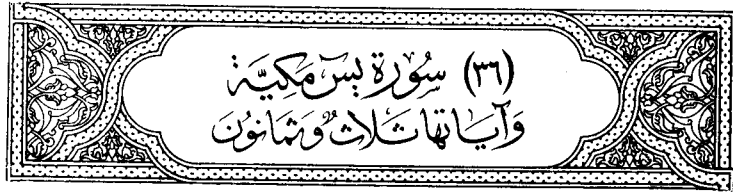 (٣٦) سُورَة يسٓ مَكِيَّة
وَآيَاتهَا ثَلَاثٌ وَثمَانُونَ